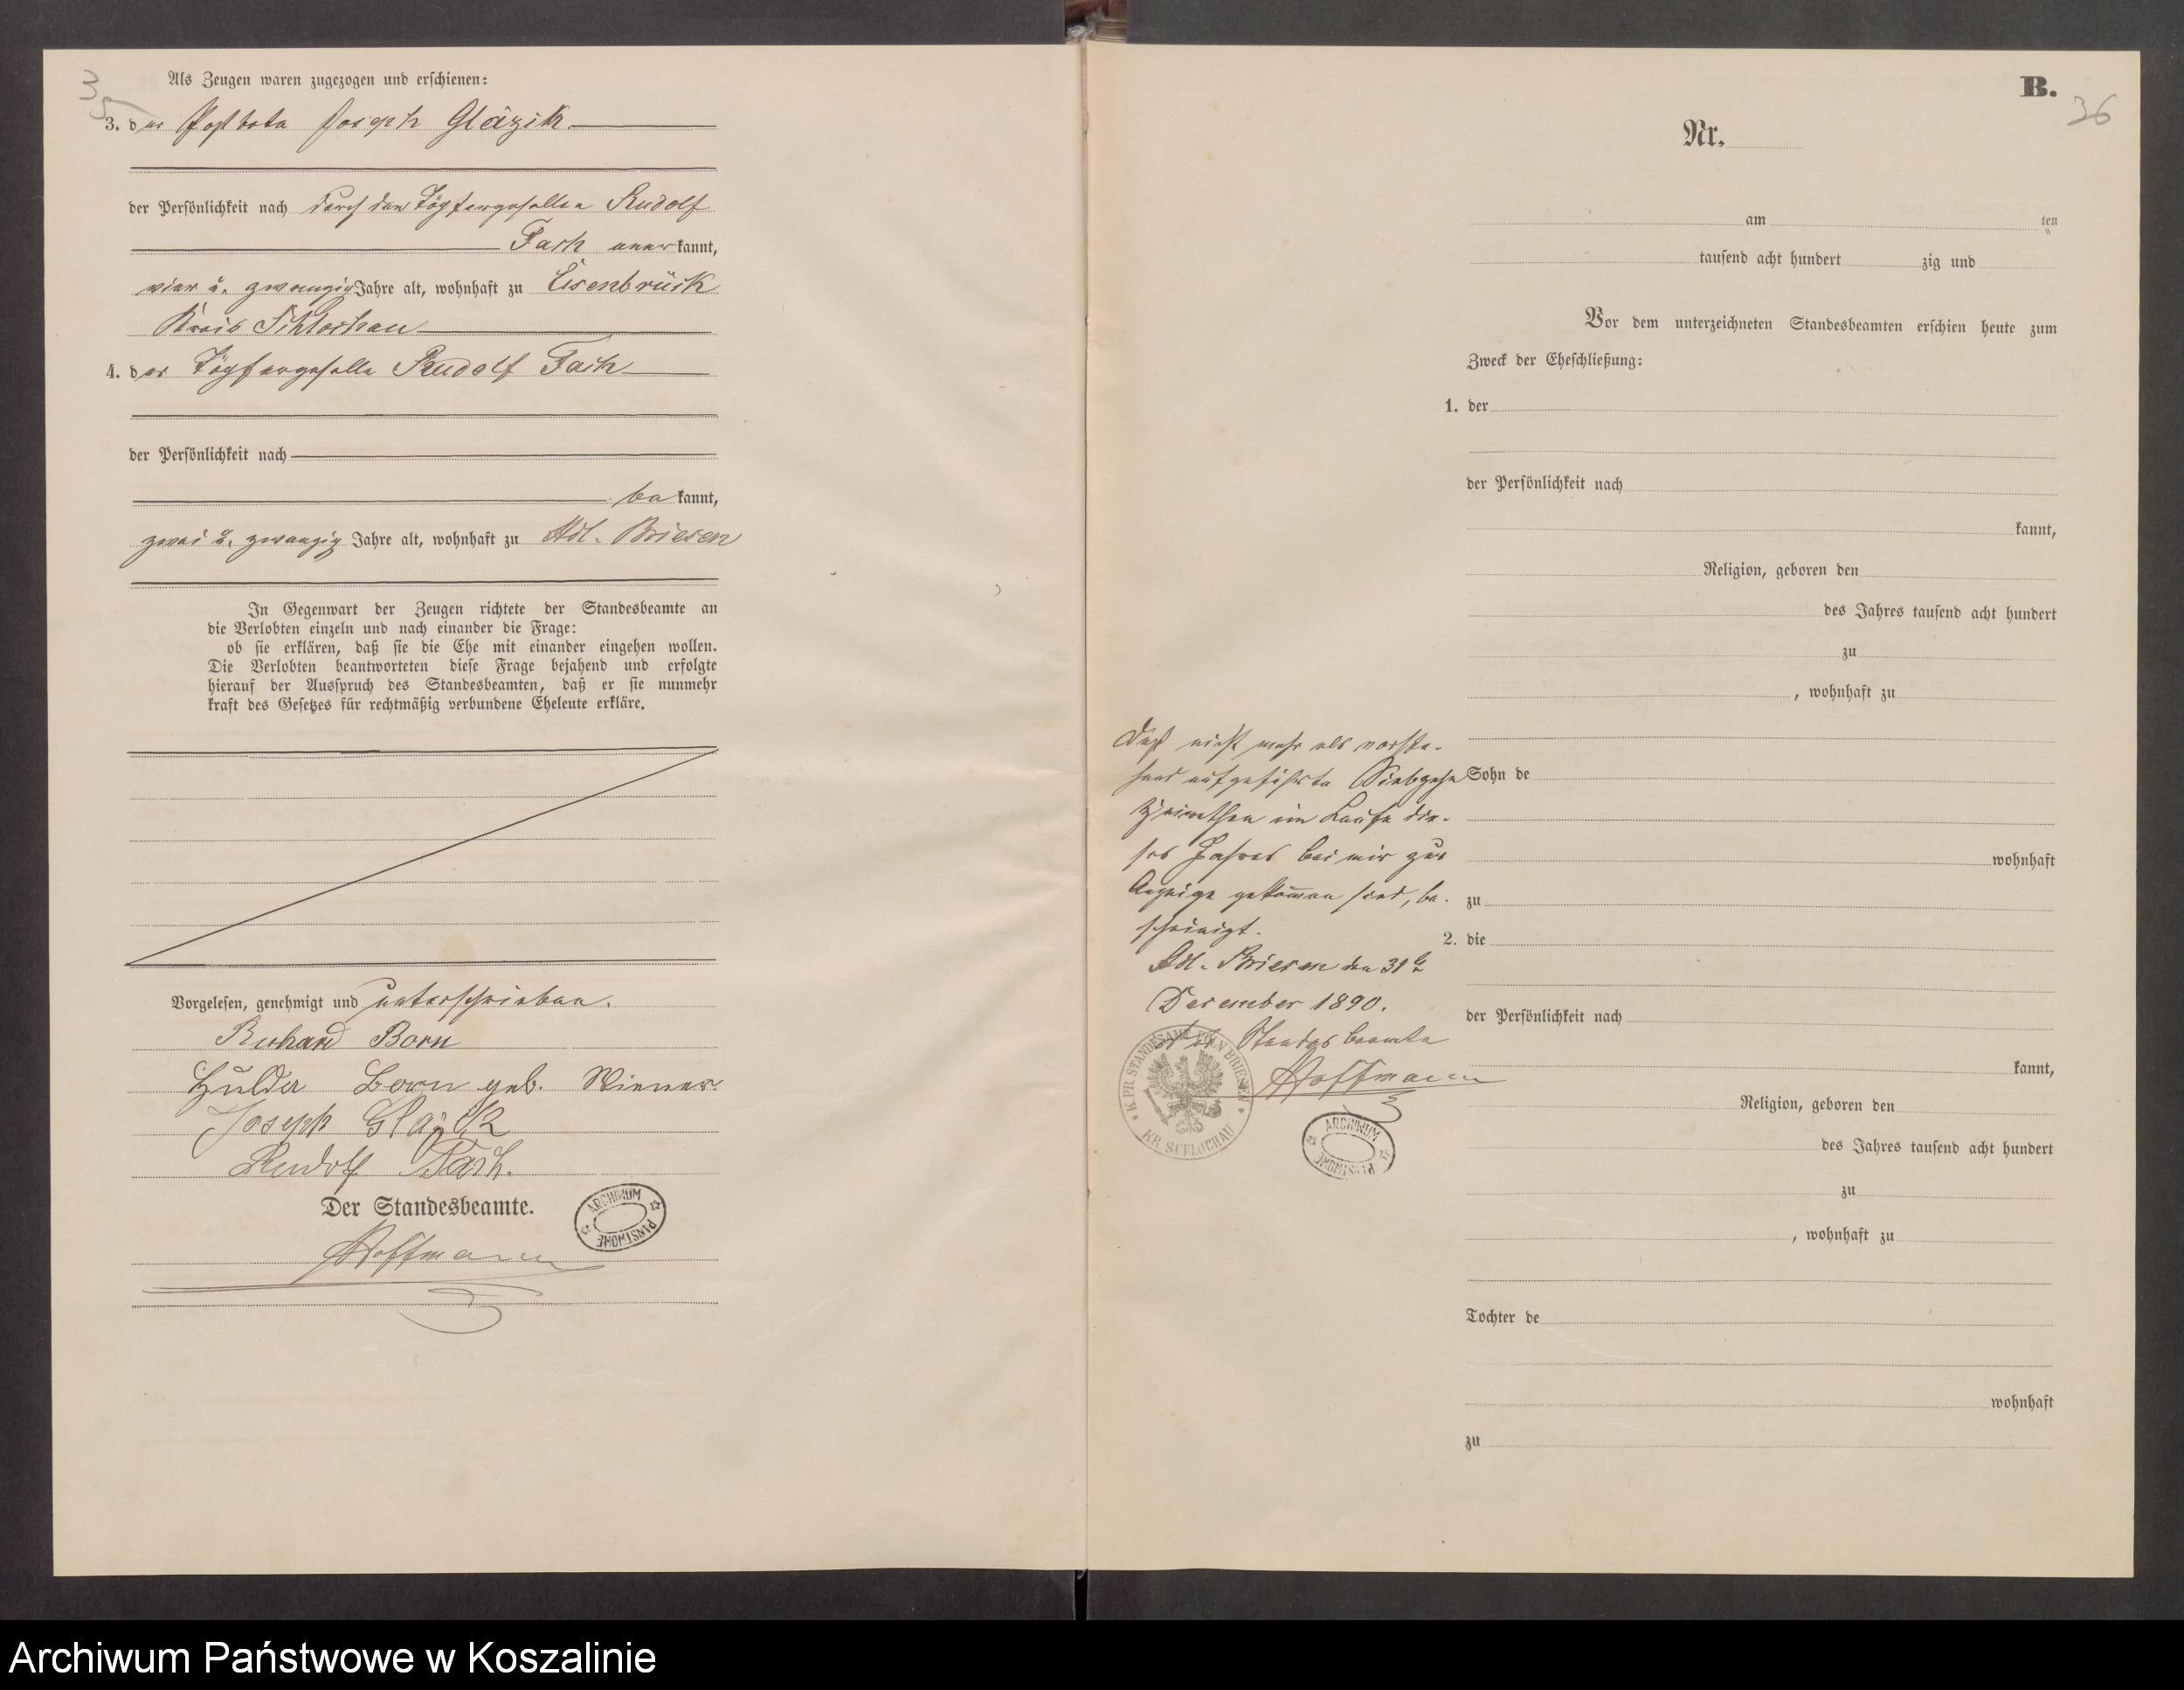 35
Als Zeugen waren zugezogen und erschienen:
3. der Postbote Joseph Gläzik
der Persönlichkeit nach durch den Töpfergesellen Rudolf
Fach anerkannt,
vier u. zwanzig Jahre alt, wohnhaft zu Eisenbrück
Kreis Schlochau
4. der Töpfergeselle Rudolf Fach
der Persönlichkeit nach
bekannt,
zwei u. zwanzig Jahre alt, wohnhaft zu Adl. Briesen
In Gegenwart der Zeugen richtete der Standesbeamte an
die Verlobten einzeln und nach einander die Frage:
ob sie erklären, daß sie die Ehe mit einander eingehen wollen.
Die Verlobten beantworteten diese Frage bejahend und erfolgte
hierauf der Ausspruch des Standesbeamten, daß er sie nunmehr
kraft des Gesetzes für rechtmäßig verbundene Eheleute erkläre.
Vorgelesen, genehmigt und unterschrieben.
Richard Born
Hulda Born geb. Wiener.
Joseph Gläzik
Rudolf Fach.
Der Standesbeamte.
Hoffmann
ARCHIWUM PAŃSTWOWE
B.
36
Nr.
am ten
tausend acht hundert zig und
Vor dem unterzeichneten Standesbeamten erschien heute zum
Zweck der Eheschließung:
1. der
der Persönlichkeit nach
kannt,
Religion, geboren den
des Jahres tausend acht hundert
zu
, wohnhaft zu
Sohn de
wohnhaft
zu
2. die
der Persönlichkeit nach
kannt,
Religion, geboren den
des Jahres tausend acht hundert
zu
, wohnhaft zu
Tochter de
wohnhaft
zu
Daß nicht mehr als vorste-
hend aufgeführte Siebzehn
Heirathen im Laufe die-
ses Jahres bei mir zur
Anzeige gekommen sind, be-
scheinigt.
Adl. Briesen den 31ten
December 1890.
Der Standesbeamte
Hoffmann
K. PR. STANDESAMT ADLN BRIESEN
KR. SCHLOCHAU
ARCHIWUM PAŃSTWOWE
Archiwum Państwowe w Koszalinie